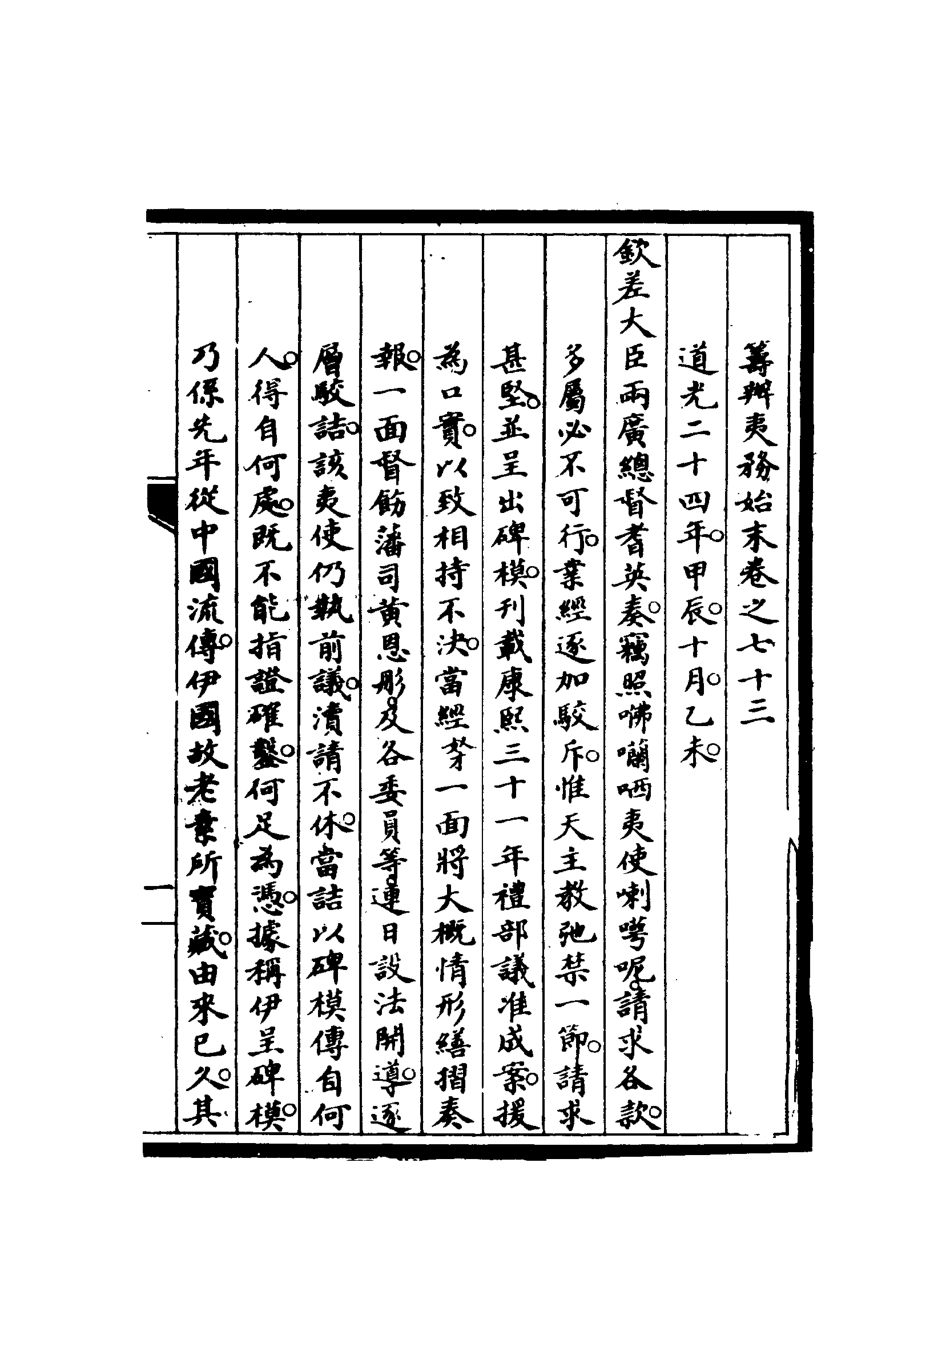 籌辦夷務始末卷之七十三
道光二十四年。甲辰。十月。乙未。
欽差大臣兩廣總督耆英奏。竊照咈囒哂夷使喇嘮呢。請求各款。
多屬必不可行。業經逐加駮斥。惟天主教弛禁一節。請求
甚堅。並呈出碑模。刊載康熙三十一年禮部議准成案。援
為口實。以致相持不決。當經奴才一面將大概情形繕摺奏
報。一面督飭藩司黃恩彤。及各委員等。連日設法開導。逐
層駮詰。該夷使仍執前議。瀆請不休。當詰以碑模傳自何
人。得自何處。既不能指證確鑿。何足為憑。據稱伊呈碑模。
乃係先年從中國流傳。伊國故老業所寶藏。由來已久。其
一